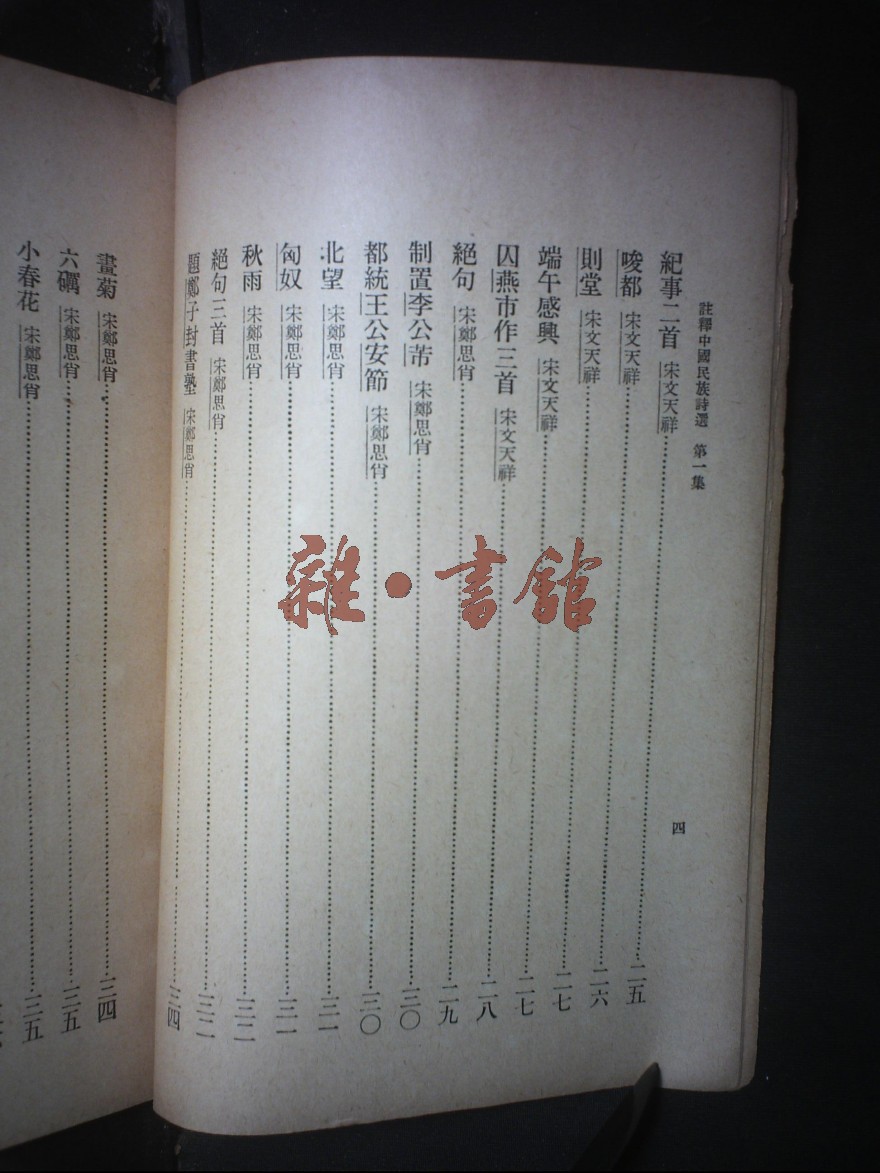 註釋中國民族詩選 第一集
四
紀事二首 宋文天祥……二五
唆都 宋文天祥……二六
則堂 宋文天祥……二七
端午感興 宋文天祥……二七
囚燕市作三首 宋文天祥……二八
絕句 宋鄭思肖……二九
制置李公芾 宋鄭思肖……三〇
都統王公安節 宋鄭思肖……三〇
北望 宋鄭思肖……三一
匈奴 宋鄭思肖……三一
秋雨 宋鄭思肖……三二
絕句三首 宋鄭思肖……三二
題鄭子封書塾 宋鄭思肖……三四
畫菊 宋鄭思肖……三四
六礪 宋鄭思肖……三五
小春花 宋鄭思肖……三五
雜·書館